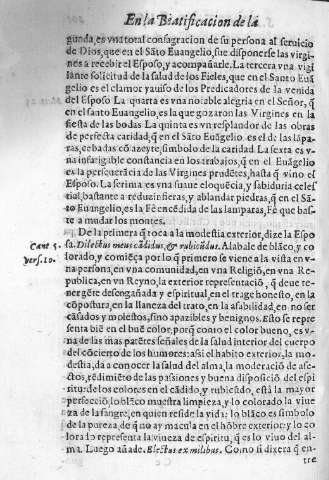 En la Beatificacion de la
gunda, es vna total consagracion de su persona al seruicio
de Dios, que en el Sāto Euangelio, fue disponerse las virgi-
nes a recebir el Esposo, y acompañarle. La tercera vna vigi
lante solicitud de la salud de los Fieles, que en el Santo Euā
gelio es el clamor y auiso de los Predicadores de la venida
del Esposo. La quarta es vna notable alegria en el Señor, q̄
en el santo Euangelio, es la que gozaron las Virgines en la
fiesta de las bodas. La quinta es vn resplandor de las obras
de perfecta caridad, q̄ en el Sāto Euāgelio es el de las lāpa-
ras, cebadas cō azeyte, simbolo de la caridad. La sexta es v-
na infatigable constancia en los trabajos, q̄ en el Euāgelio
es la perseuerācia de las Virgines prudētes, hasta q̄ vino el
Esposo. La setima es vna suaue eloquēcia, y sabiduria celes
trial, bastante a reduzir fieras, y ablandar piedras, q̄ en el Sā-
to Euangelio, es la Fè encēdida de las lamparas, Fè que bas-
te a mudar los montes.
De la primera q̄ toca a la modestia exterior, dize la Espo
Cant 5.
sa. Dilectus meus cādidus, & rubicūdus. Alabale de blāco, y co
vers. 10.
lorado, y comiēça por lo q̄ primero se viene a la vista en v-
na persona, en vna comunidad, en vna Religiō, en vna Re-
publica, en vn Reyno, la exterior representaciō, q̄ deue te-
ner gēte desengañada y espiritual, en el trage honesto, en la
cōpostura, en la llaneza del trato, en la afabilidad, en no ser
cāsados y molestos, sino apazibles y benignos. Esto se repre
senta biē en el buē color, porq̄ como el color bueno, es v-
na de las mas patētes señales de la salud interior del cuerpo
del cōcierto de los humores: asi el habito exterior, la mo-
destia, da a conocer la salud del alma, la moderaciō de afe-
ctos, rēdimiēto de las passiones y buena disposiciō del espi
ritu: de los colores en el cādido, y rubicūdo, està la mayor
perfecciō, lo blāco muestra limpieza, y lo colorado la viue
za de la sangre, en quien reside la vida: lo blāco es simbolo
de la pureza, de q̄ no ay macula en el hōbre exterior: y lo co
lorado representa la viueza de espiritu, q̄ es lo viuo del al-
ma. Luego añade. Electus ex milibus. Como si dixera q̄ en-
tre